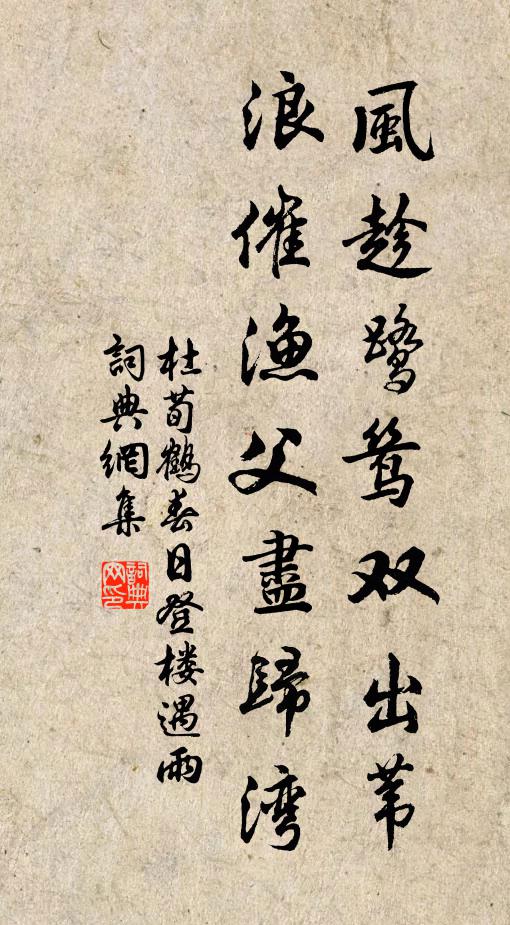 風趁鷺鸶双出苇
浪催漁父盡歸湾
杜荀鶴春日登楼遇雨
詞典網集
詞典網印